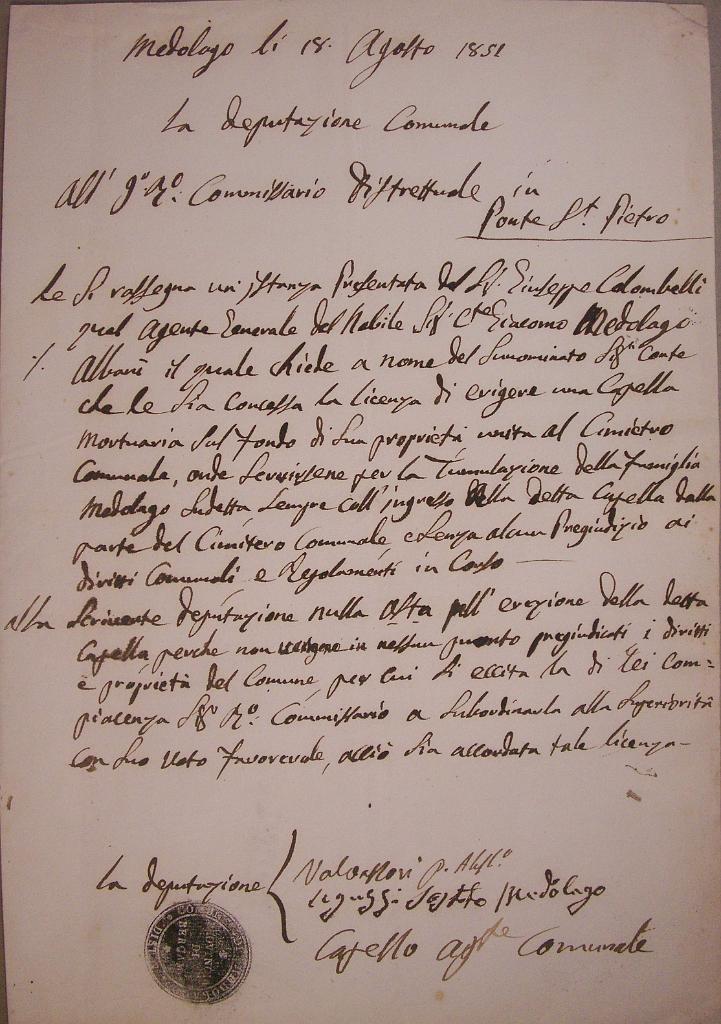 Medolago li 18. Agosto 1851
La Deputazione Comunale
All' I. R. Commissario Distrettuale in
Ponte St. Pietro
Le Si rassegna un' jstanza Presentata dal Sig. Giuseppe Colombelli
qual Agente Generale del Nobile Sigr Cte Giacomo Medolago
Albani il quale chiede a nome del Sunominato Sigr Conte
che le Sia Concessa la licenza di erigere una Capella
Mortuaria Sul fondo di Sua proprietà unita al Cimietro
Comunale, onde Servirsene per la Tumulazione della Famiglia
Medolago Sudetta Sempre coll' ingresso della detta Capella dalla
parte del Cimitero Comunale e Senza alcun Pregiudizio ai
diritti Comunali e Regolamenti in Corso
Alla Scrivente deputazione nulla osta all' erezione della detta
Capella perche non vengono in nessun punto pregiudicati i diritti
e proprietà del Comune per cui Si eccita la di Lei Com=
piacenza Sigr Ro. Commissario a Subordinarla alla Superiorità
con Suo Voto Favorevole, acciò Sia accordata tale licenza-
La deputazione
Medolago
Capello Agte Comunale